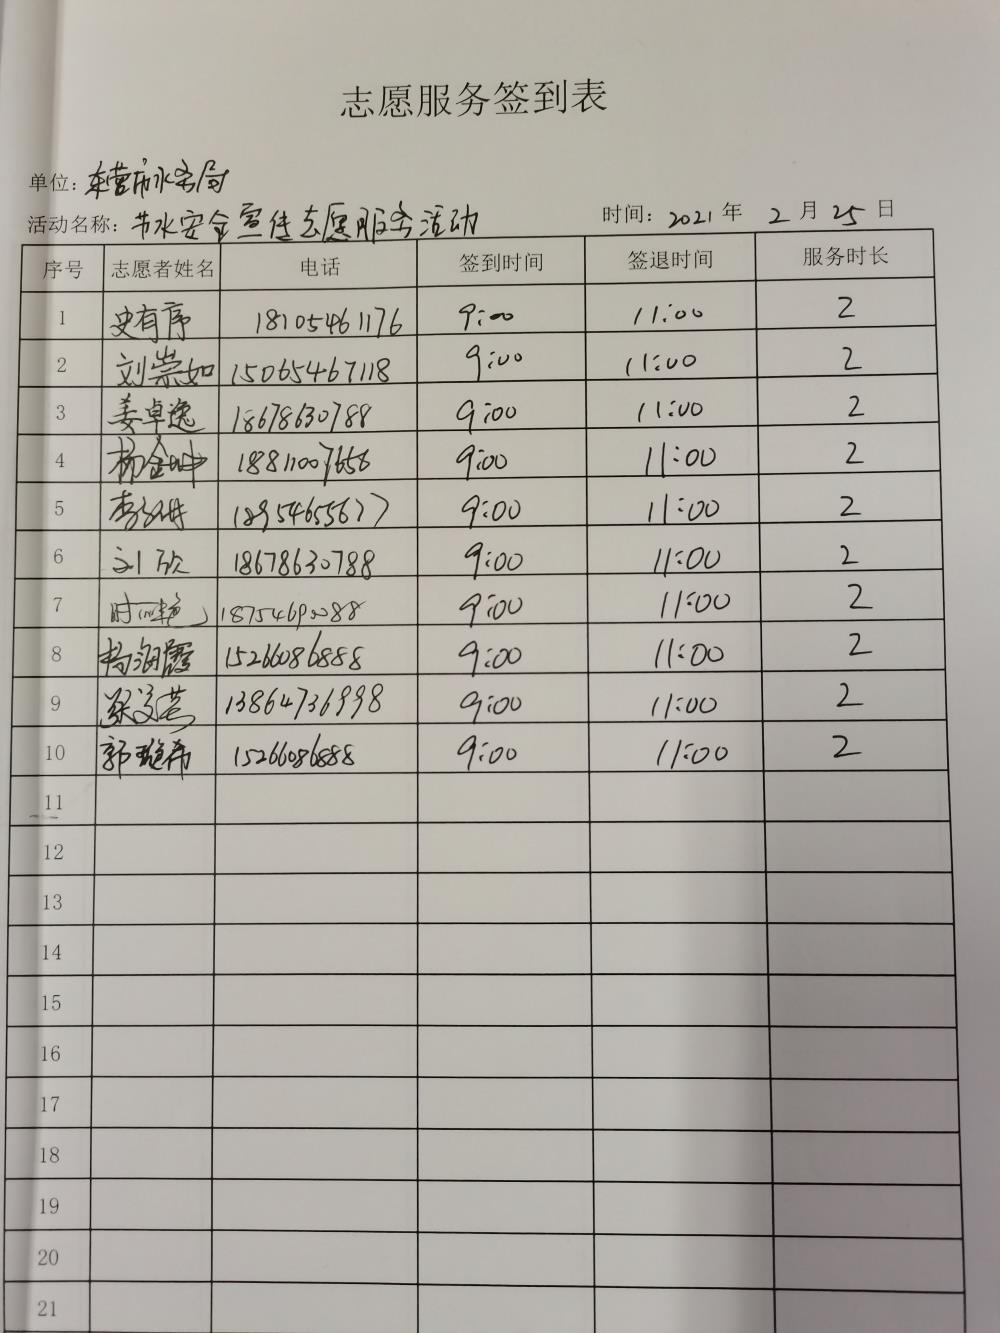 志愿服务签到表
单位：东营市水务局
活动名称：节水安全宣传志愿服务活动 时间：2021年 2月 25日
序号 志愿者姓名 电话 签到时间 签退时间 服务时长
1 史有序 18105461176 9:00 11:00 2
2 刘崇如 15065467118 9:00 11:00 2
3 姜卓逸 18678630788 9:00 11:00 2
4 杨金坤 18811007656 9:00 11:00 2
5 李 18954655677 9:00 11:00 2
6 刘欣 18678630788 9:00 11:00 2
7 时艳 18754690088 9:00 11:00 2
8 杨海霞 15266086888 9:00 11:00 2
9 张文燕 13864736998 9:00 11:00 2
10 郭璇希 15266086888 9:00 11:00 2
11
12
13
14
15
16
17
18
19
20
21